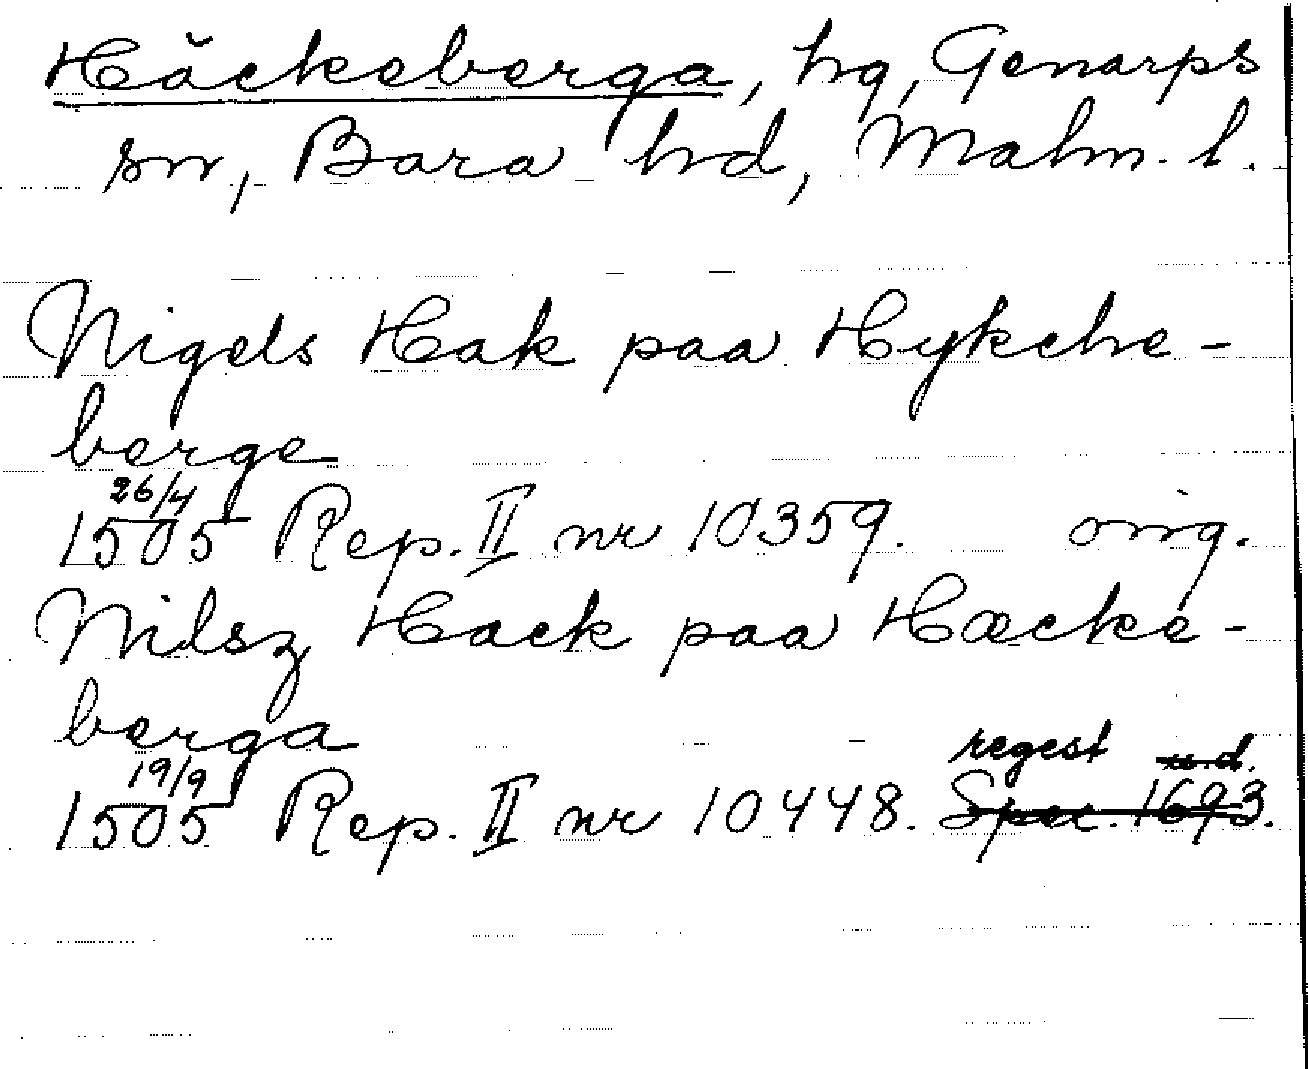 Häckeberga, hg, Genarps
sn, Bara hd, Malm. l.
Nigels Hak paa Hykche-
berge
26/4
1505 Rep. II nr 10359. orig.
Nilsz Hack paa Hæcke-
berga
regest u.d.
19/9
1505 Rep. II nr 10448. Spec. 1693.